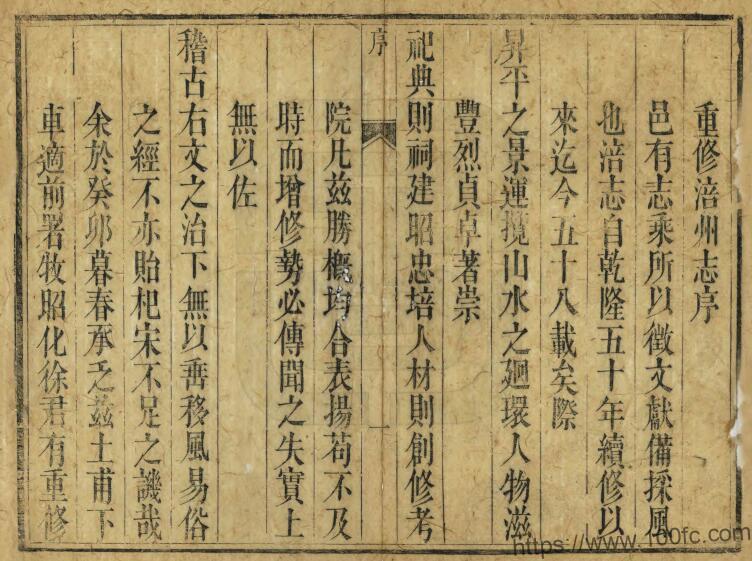 重修涪州志序
邑有志乘所以徵文獻備採風
也涪志自乾隆五十年續修以
來迄今五十八載矣際
昇平之景運攬山水之廻環人物滋
豐烈貞卓著崇
祀典則祠建昭忠培人材則創修考
序
一
院凡茲勝概均合表揚苟不及
時而增修勢必傳聞之失實上
無以佐
稽古右文之治下無以垂移風易俗
之經不亦貽杞宋不足之譏哉
余於癸卯暮春承乏茲土甫下
車適前署牧昭化徐君有重修
https://www.100fc.com